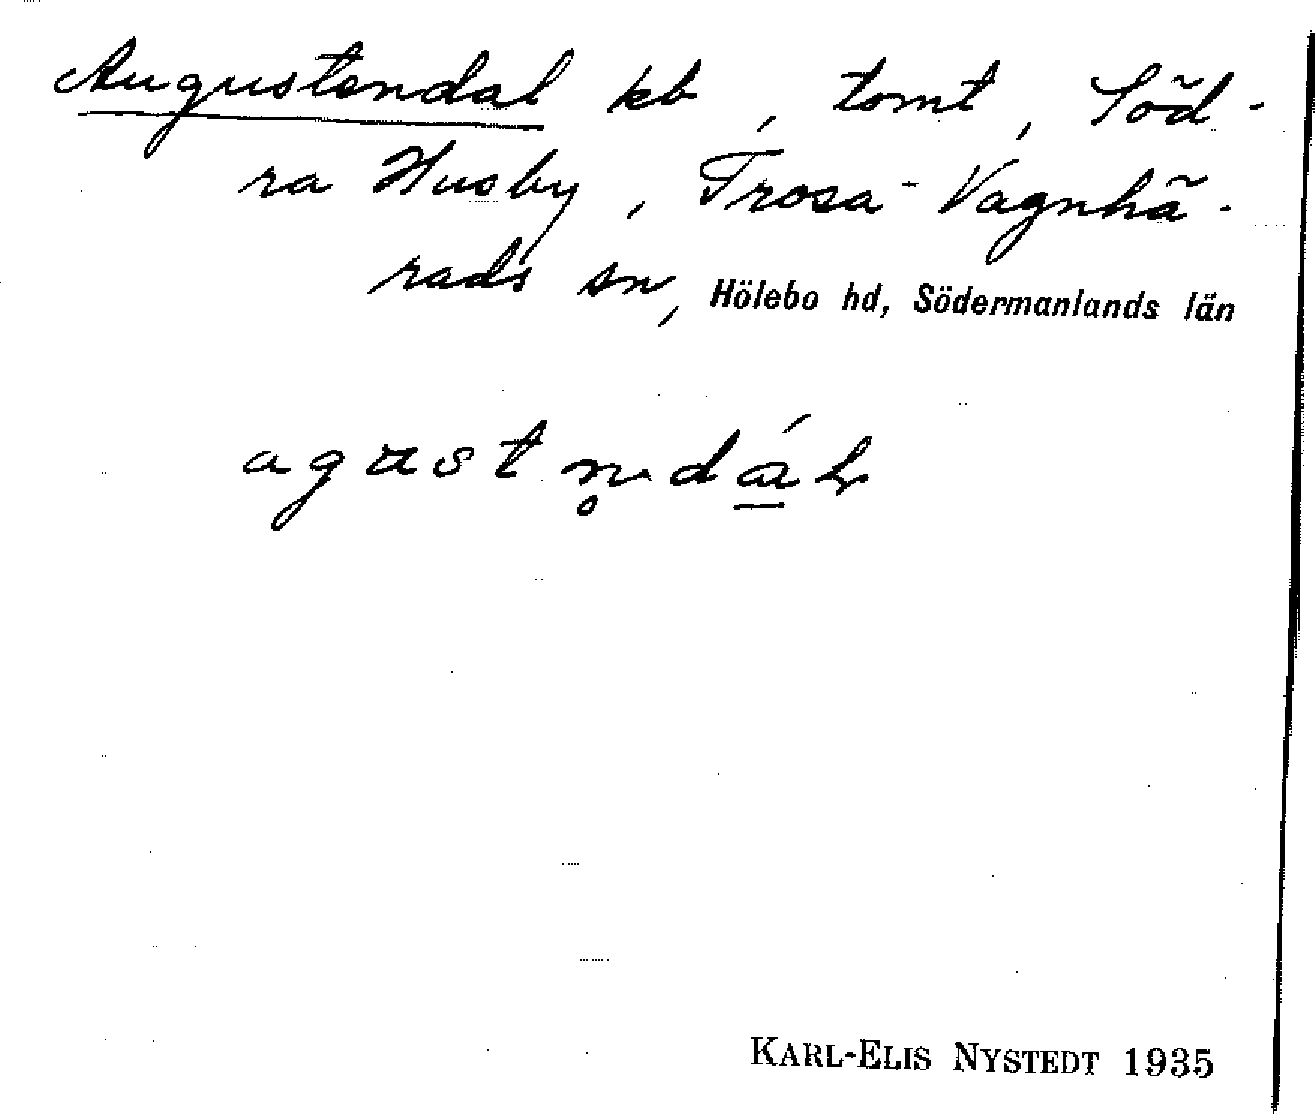 Augustendal kb, tomt, Söd-
ra Husby, Trosa-Vagnhä-
rads sn, Hölebo hd, Södermanlands län
agustn̥dá̱l
KARL-ELIS NYSTEDT 1935